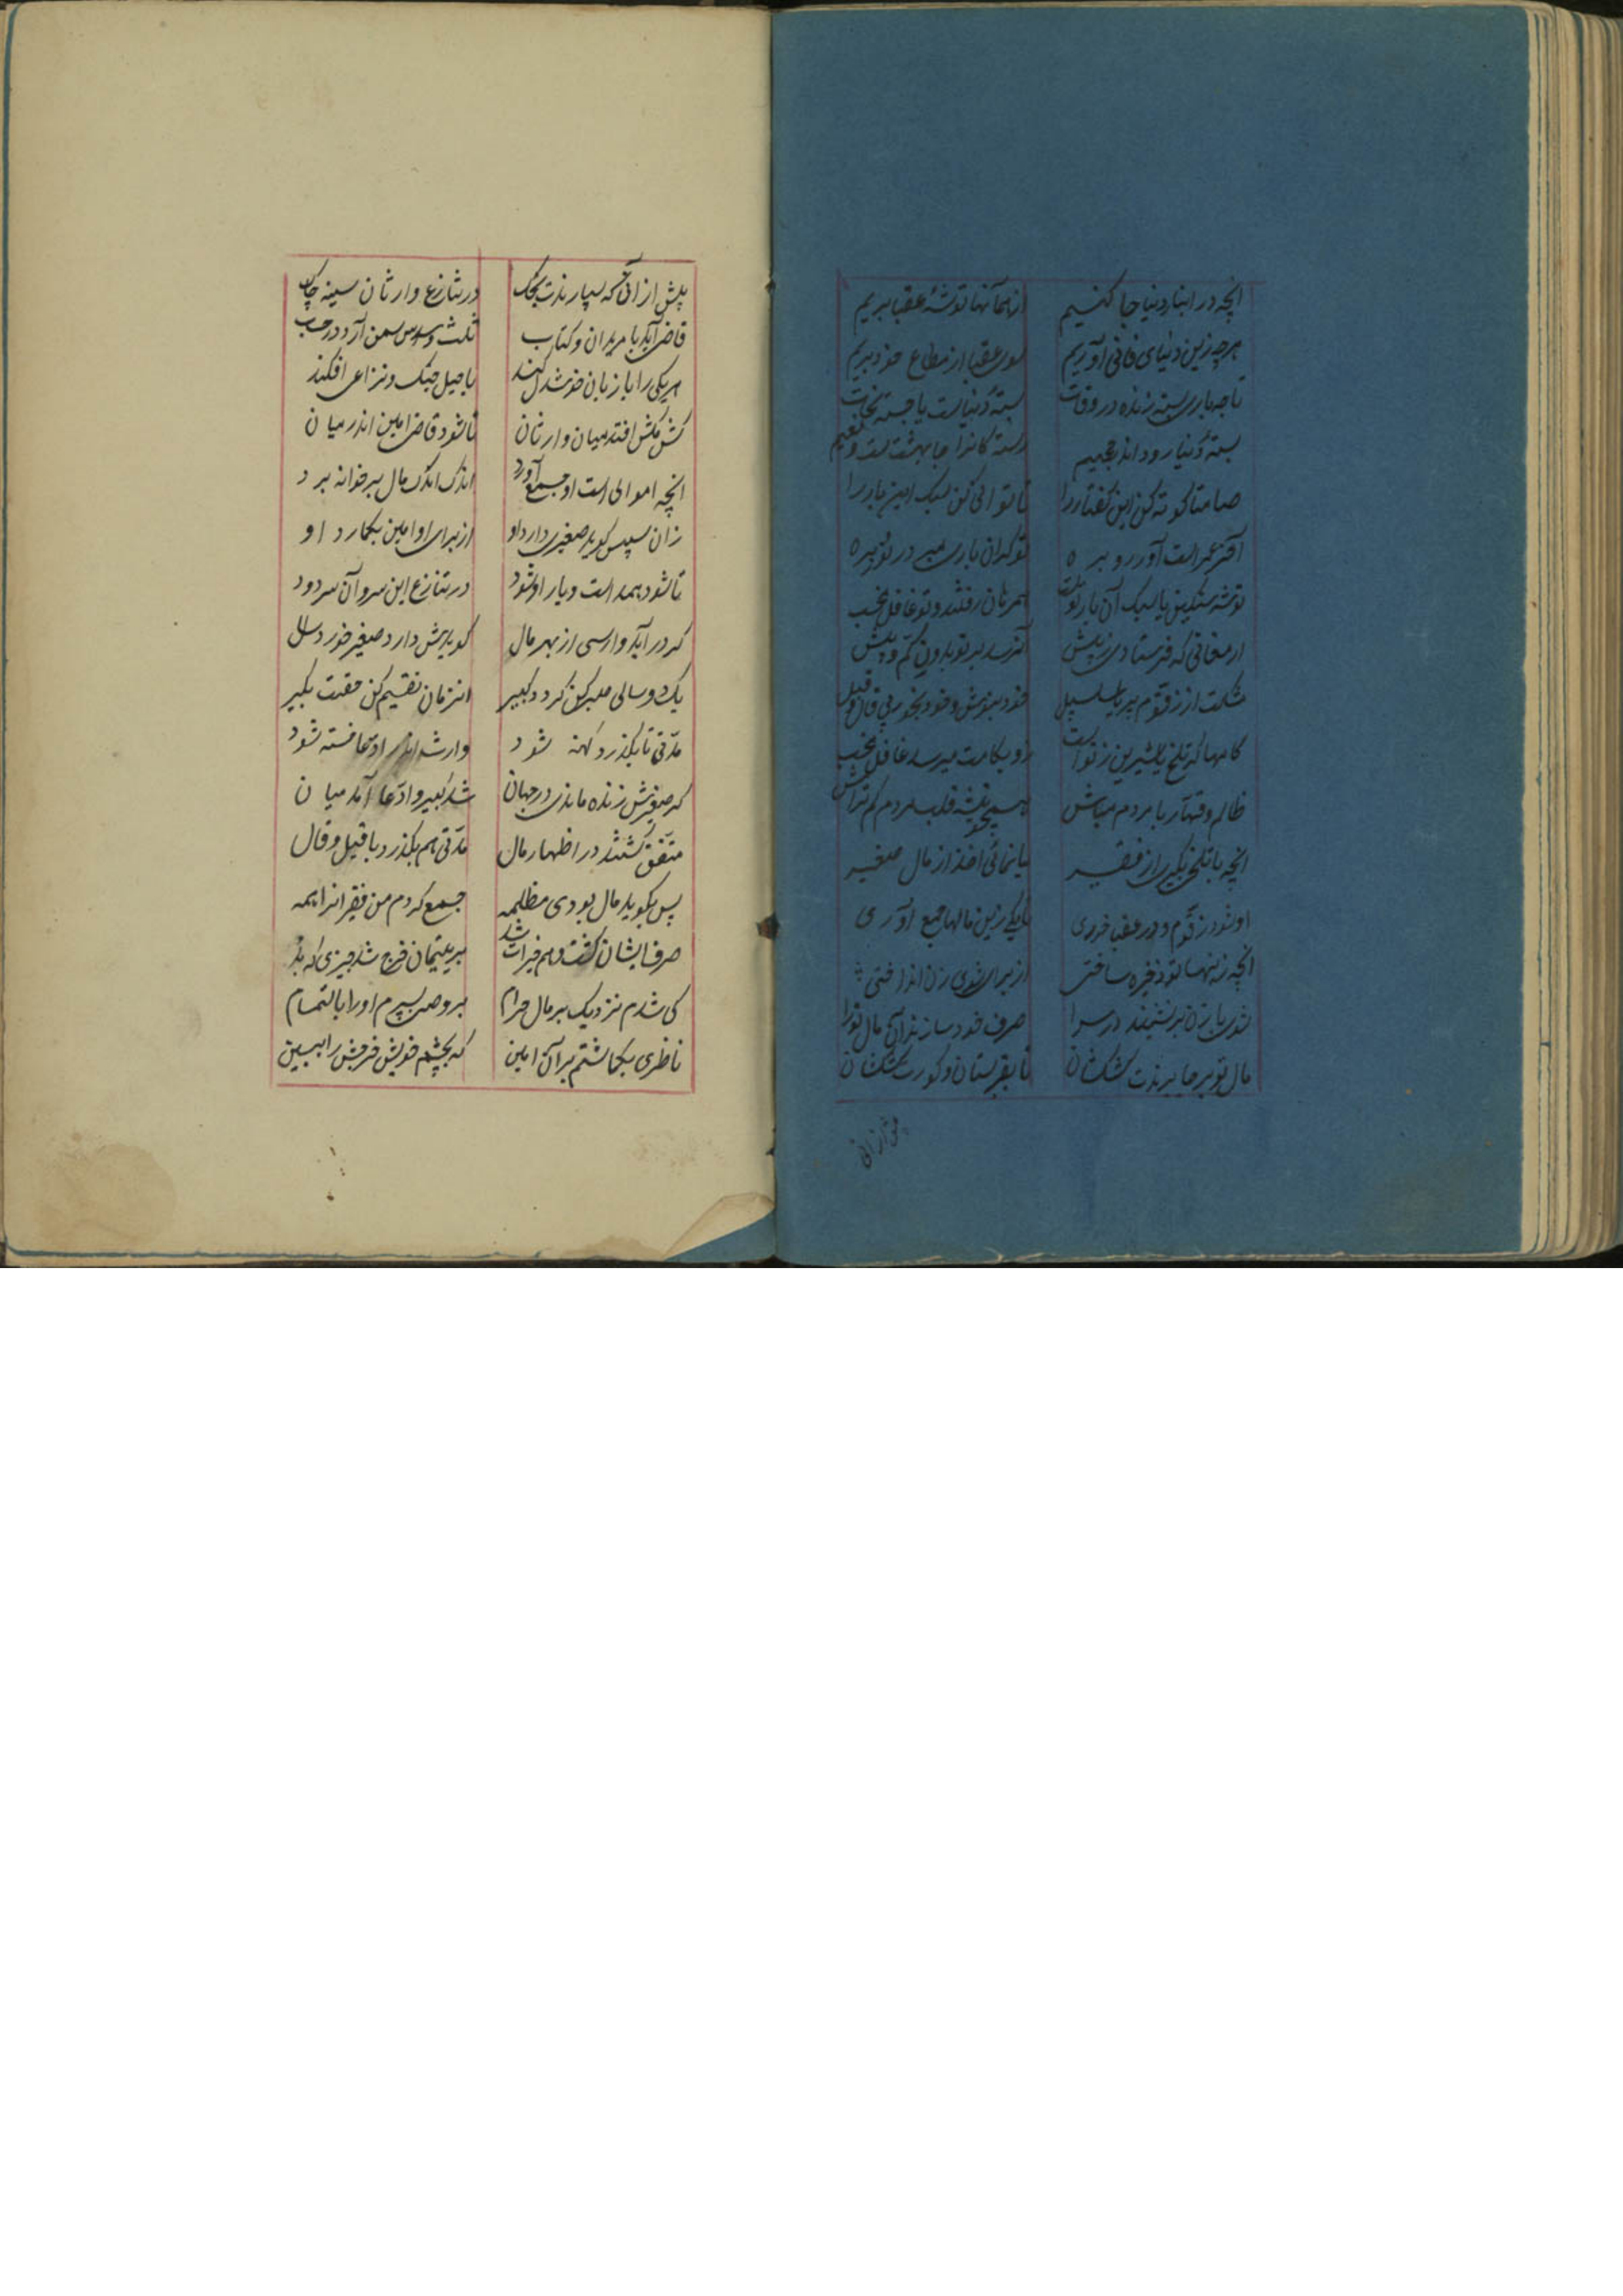 انچه در انبار دنیا جا کنیم از همانها توشهٔ عقبا بریم
هرچه زین دنیای فانی آوریم سوی عقبا از مطاع خود بریم
تا چه باری بسته زنده در وفات بستهٔ دنیاست یا جسته نجات
بستهٔ دنیا رود اندر جحیم رسته کانرا جا بهشت است و نعیم
صامتا کوته کن این کفتار را تا توانی کن سبک این بار را
آخر عمر است آور رو بره تو کران باری مبر در توبره
توشه سنکین یا سبک آن بار تست همرهان رفتند و تو غافل مخسب
ارمغانی که فرستادی ز پیش آن رسد بر تو بدون کم و بیش
از زقوم بر یا سلسبیل خود بنوش و خود بخور بی قال و قیل
کامها کر تلخ یا شیرین ز تو است زو بکامت میرسد غافل مخسب
ظالم و قهار با مردم مباش همچو تیشه قلب مردم کم تراش
انچه با تلخی بکیری از فقیر یا نمائی اخذ از مال صغیر
او شود زقوم و در عقبا خوری تا یکی زین مالها جمع آوری
انچه زینها تو ذخیره ساختی از برای شوی زن انداختی
شوی با زن بر نشینند در سرا صرف خود سازند آن مال ترا
مال تو بر جا برندت کشکشان تا بقبرستان و کورت کشکشان
پیش از انی
پیش از آنی که سپارندت بخاک در تنازع وارثان سینه چاک
قاضی آید با مریدان و کتاب ثلث و سدس و ثمن آرد در حساب
هریکی را با زبان خوشدل کند با حیل جنک و نزاعی افکند
کش مکش افتد میان وارثان تا شود قاضی امین اندر میان
انچه اموالی است او جمع آورد اندک اندک مال بر خوانه برد
زان سپس کوید صغیری دارد او از برای او امین بکمارد او
تا شود همدست و یار او شود در تنازع این سر و آن سر دود
کر در آید وارثی از بهر مال کویدش دارد صغیر خوردسال
یک دو سالی صبر کن کردد کبیر انزمان تقسیم کن حقت بکیر
مدتی تا بکذرد کهنه شود وارث اندر ادعا خسته شود
کر صغیرش زنده ماندی در جهان شد کبیر و ادعا آمد میان
متفق کشتند در اظهار مال مدتی هم بکذرد با قیل و قال
پس بکوید مال بودی مظلمه جمع کردم من فقیرانرا همه
صرف ایشان کشت و هم خیرات شد بر یتیمان خرج شد چیزی که بد
کی شدم نزدیک بر مال حرام بر وصی سپردم او را بالتمام
ناظری بکماشتم بر آن امین که بچشم خویش خرجش را ببین